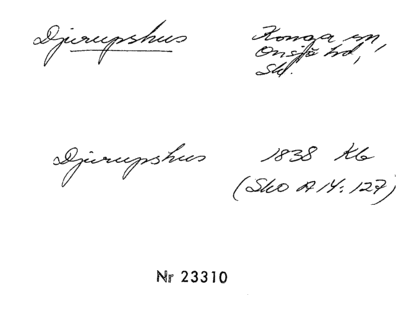 Djurupshus Konga sn,
Onsjö hd,
Skl.
Djurupshus 1838 Kb
(SkO A 14: 127)
Nr 23310